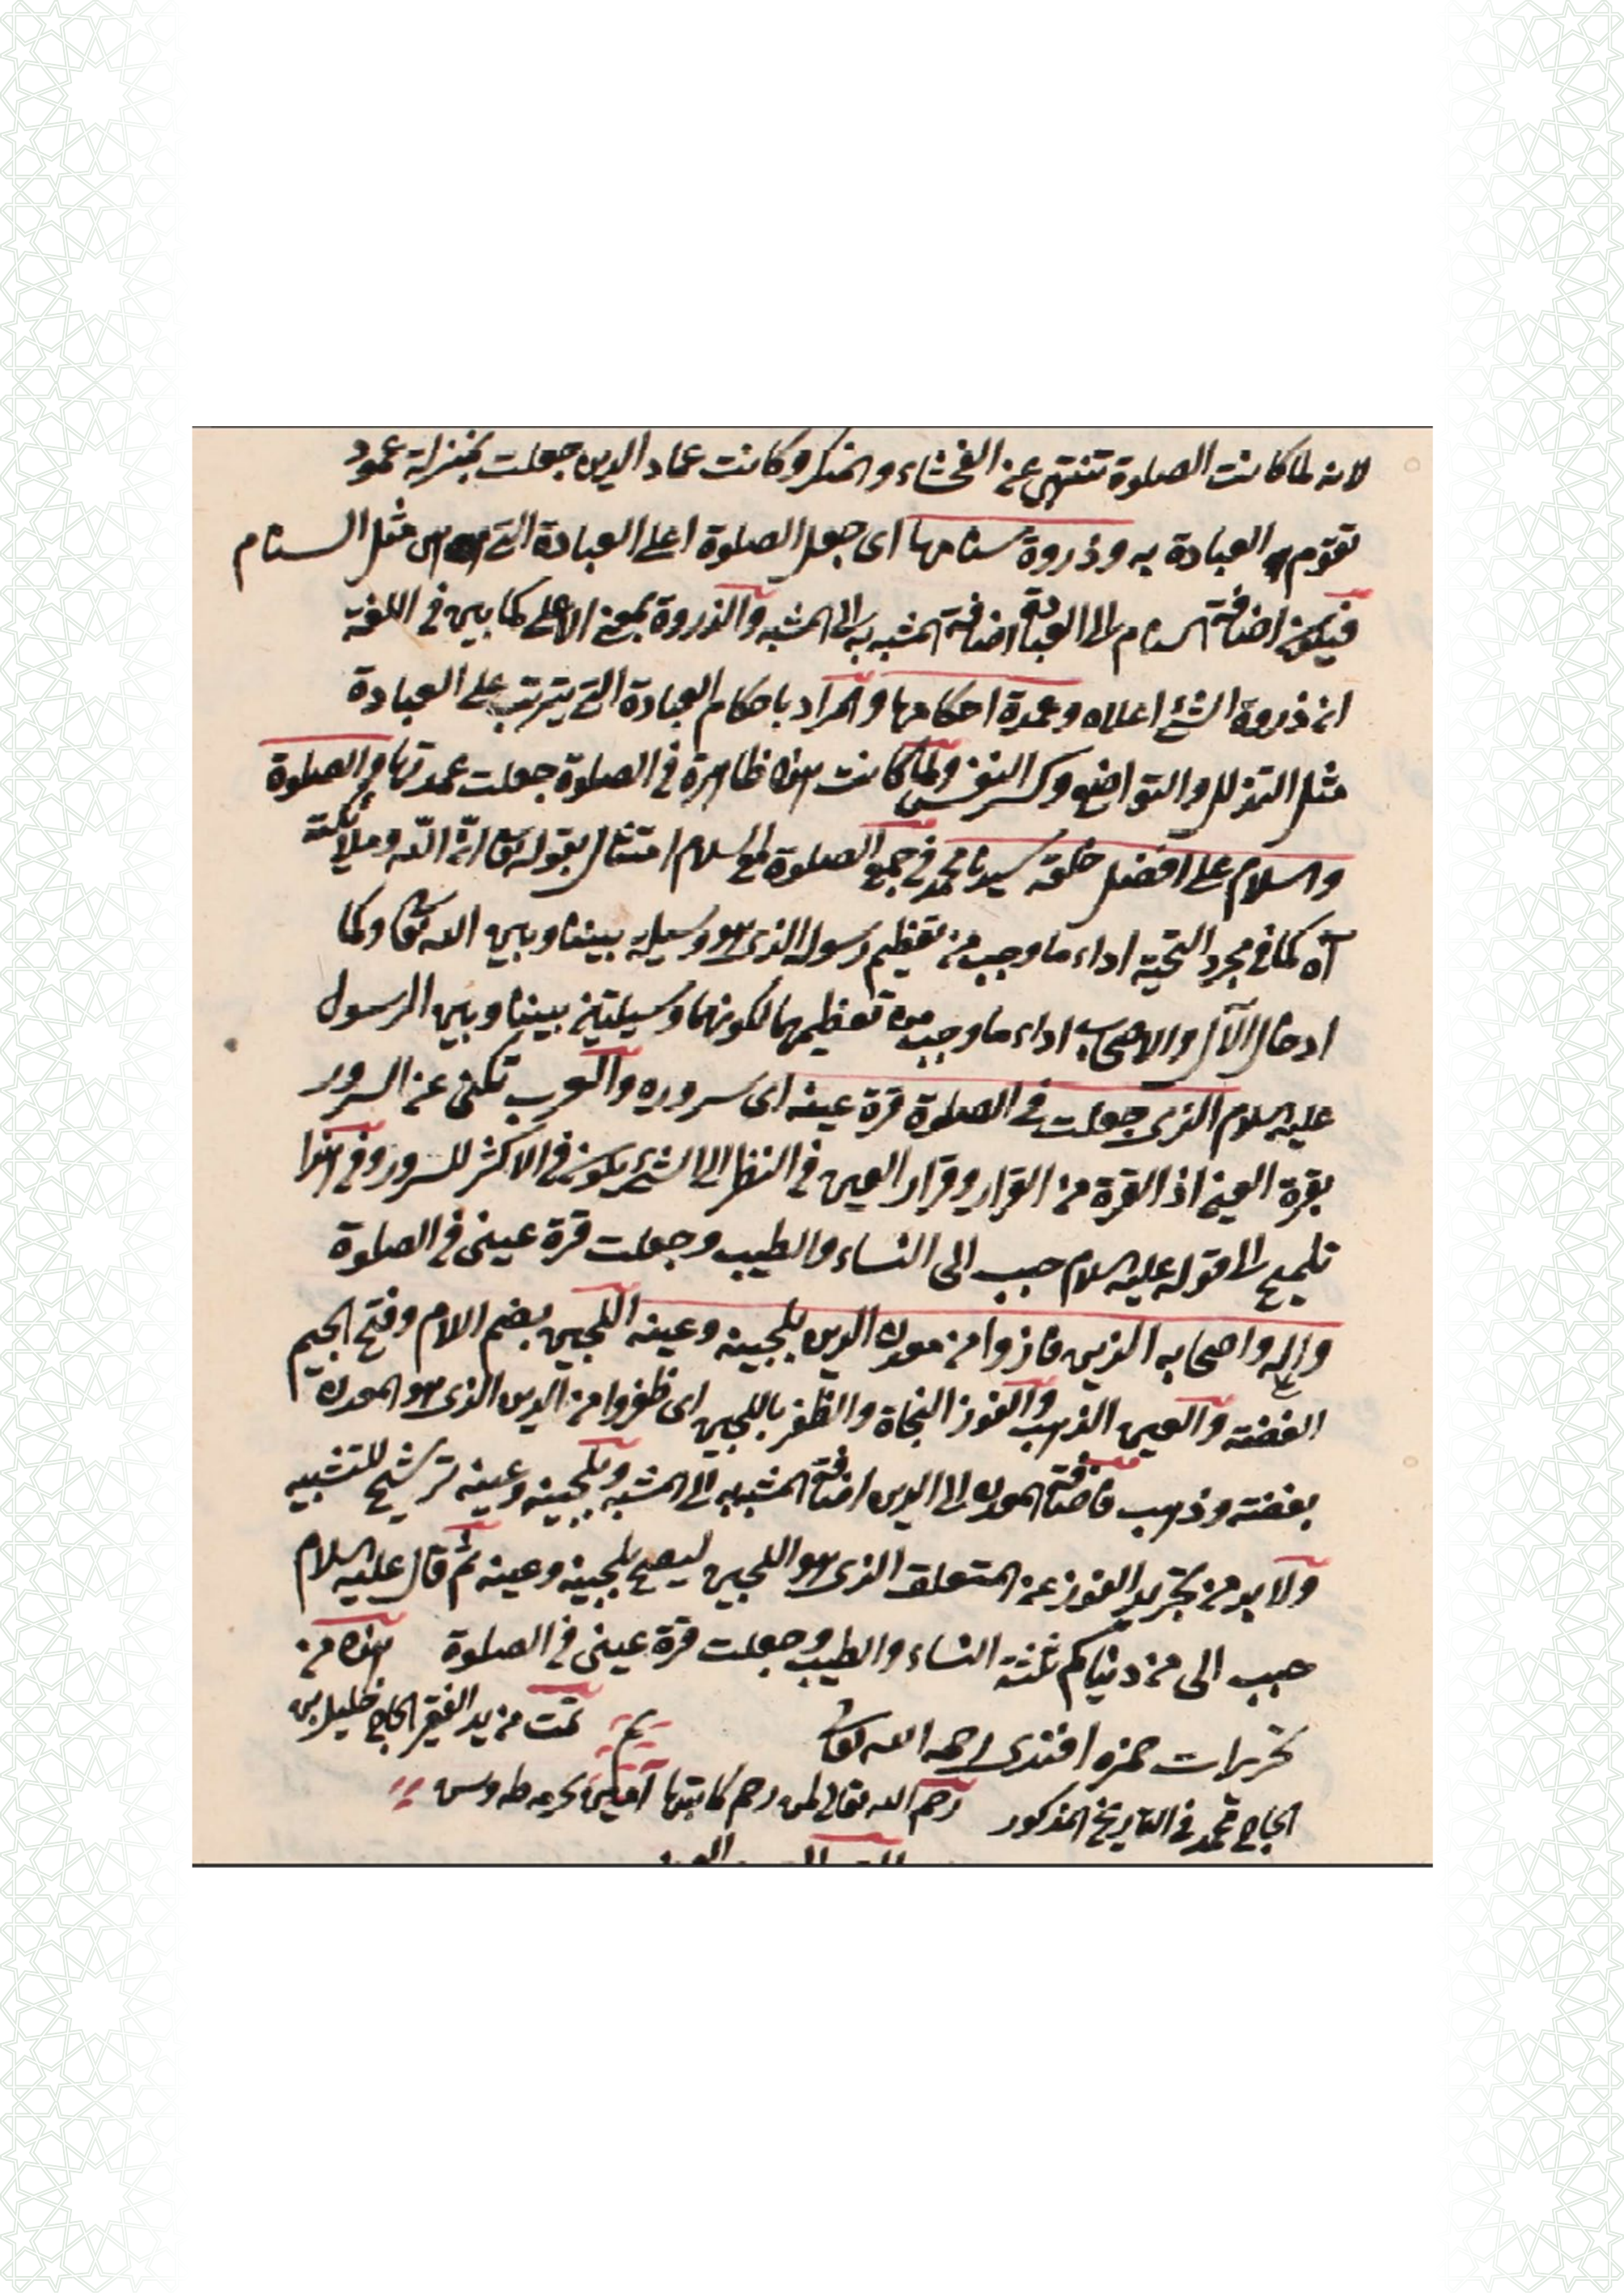 لانه لما كانت الصلوة تنتهى عن الفحشاء والمنكر وكانت عماد الدين جعلت بمنزلة عمود
تقوم العبادة به وذروة سنامها اى جعل الصلوة اعلى العبادة التى هى مثل السنام
فيكون اضافة السنام الى العبادة اضافة المشبه به الى المشبه والذروة بمعنى الاعلى كما بين فى اللغة
ان ذروة الشئ اعلاه وعمدة احكامها والمراد باحكام العبادة التى يترتب على العبادة
مثل التذلل والتواضع وكسر النفس ولما كانت هذه ظاهرة فى الصلوة جعلت عمدتها والصلوة
والسلام على افضل خلقه سيدنا محمد فى جمع الصلوة مع السلام امتثال بقوله تع انّ الله وملائكته
آه كما فى مجرد التحية اداء ما وجب من تعظيم رسوله الذى هو وسيلة بيننا وبين الله تعالى وكما
ادخال الآل والاصحاب اداء ما وجب من تعظيمهما لكونهما وسيلتين بيننا وبين الرسول
عليه السلام الذى جعلت فى الصلوة قرة عينه اى سروره والعرب تكنى عن السرور
بقرة العين اذ القرة من القرار وقرار العين فى النظر الى الشئ يكون فى الاكثر للسرور وفى هذا
تلميح الى قوله عليه السلام حبب الى النساء والطيب وجعلت قرة عينى فى الصلوة
واله واصحابه الذين فازوا من معدن الدين بلجينه وعينه اللجين بضم اللام وفتح الجيم
الفضة والعين الذهب والفوز النجاة والظفر باللجين اى ظفروا من الدين الذى هو المعدن
بفضة وذهب فاضافة المعدن الى الدين اضافة المشبه به الى المشبه وبلجينه وعينه ترشيح للتشبيه
ولا بد من تجريد الفوز عن المتعلق الذى هو اللجين ليصح بلجينه وعينه ثم قال عليه السلام
حبب الى من دنياكم ثلثة النساء والطيب وجعلت قرة عينى فى الصلوة هذه من
تحريرات حمزه افندى رحمه الله تعالى تم تمت من يد الفقير الحاج خليل بن
الحاج محمد فى التاريخ المذكور رحم الله تعالى لمن رحم كاتبها آمين بحرمة طه ويس